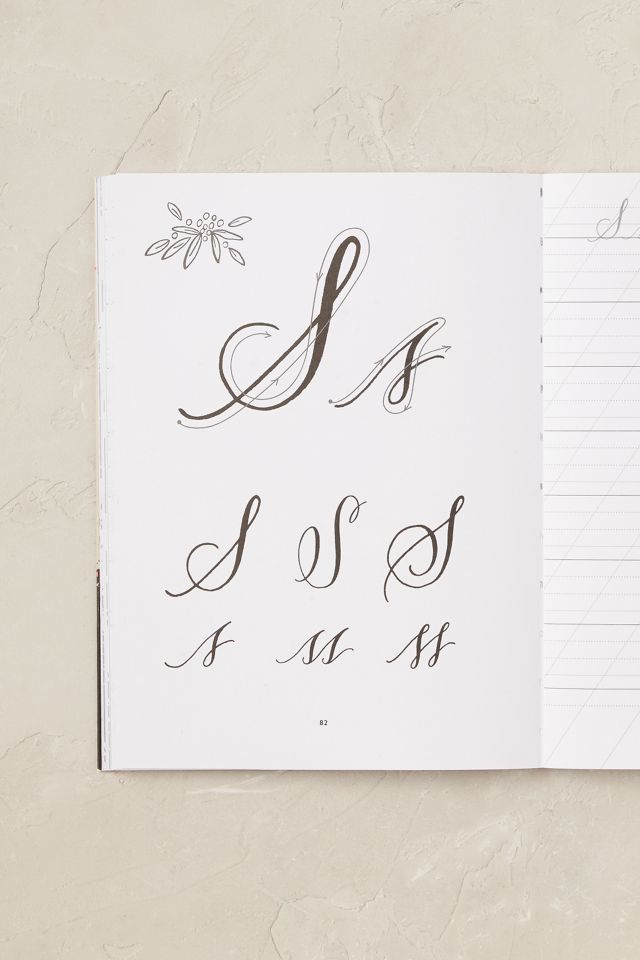 S s
S S S
s ss ss
82
S